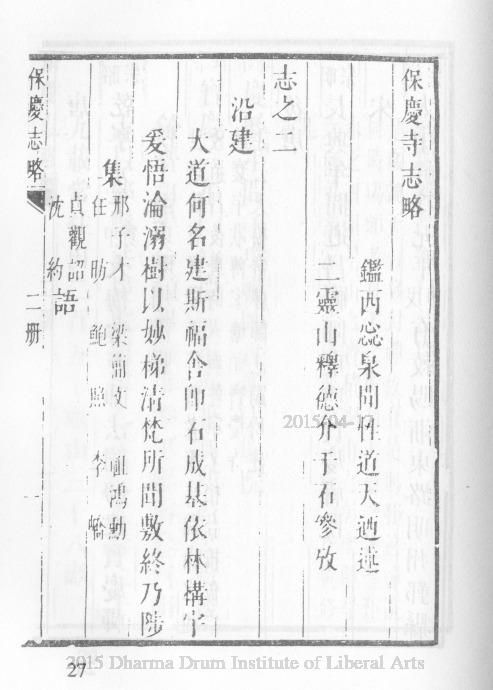 保慶寺志略
鑑西惢泉聞性道天迺述
二靈山釋德介于石參攷
志之二
沿建
大道何名建斯福舍卽石成基依林構宇
爰悟淪溺樹以妙梯清梵所聞敷終乃陟
集
邢子才 梁簡文 祖鴻勳
任昉 鮑照 李嶠
貞觀詔
沈約
語
保慶志略 二册 一
2015/04-17
27
2015 Dharma Drum Institute of Liberal Arts